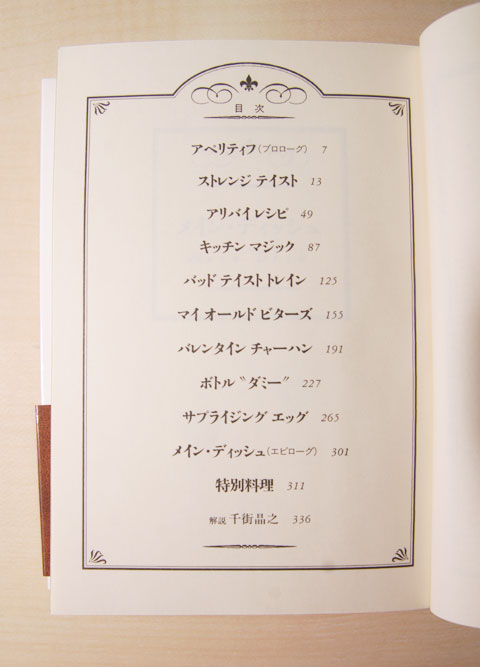 目次
アペリティフ(プロローグ) 7
ストレンジ テイスト 13
アリバイ レシピ 49
キッチン マジック 87
バッド テイスト トレイン 125
マイ オールド ビターズ 155
バレンタイン チャーハン 191
ボトル〝ダミー〟 227
サプライジング エッグ 265
メイン・ディッシュ(エピローグ) 301
特別料理 311
解説 千街晶之 336